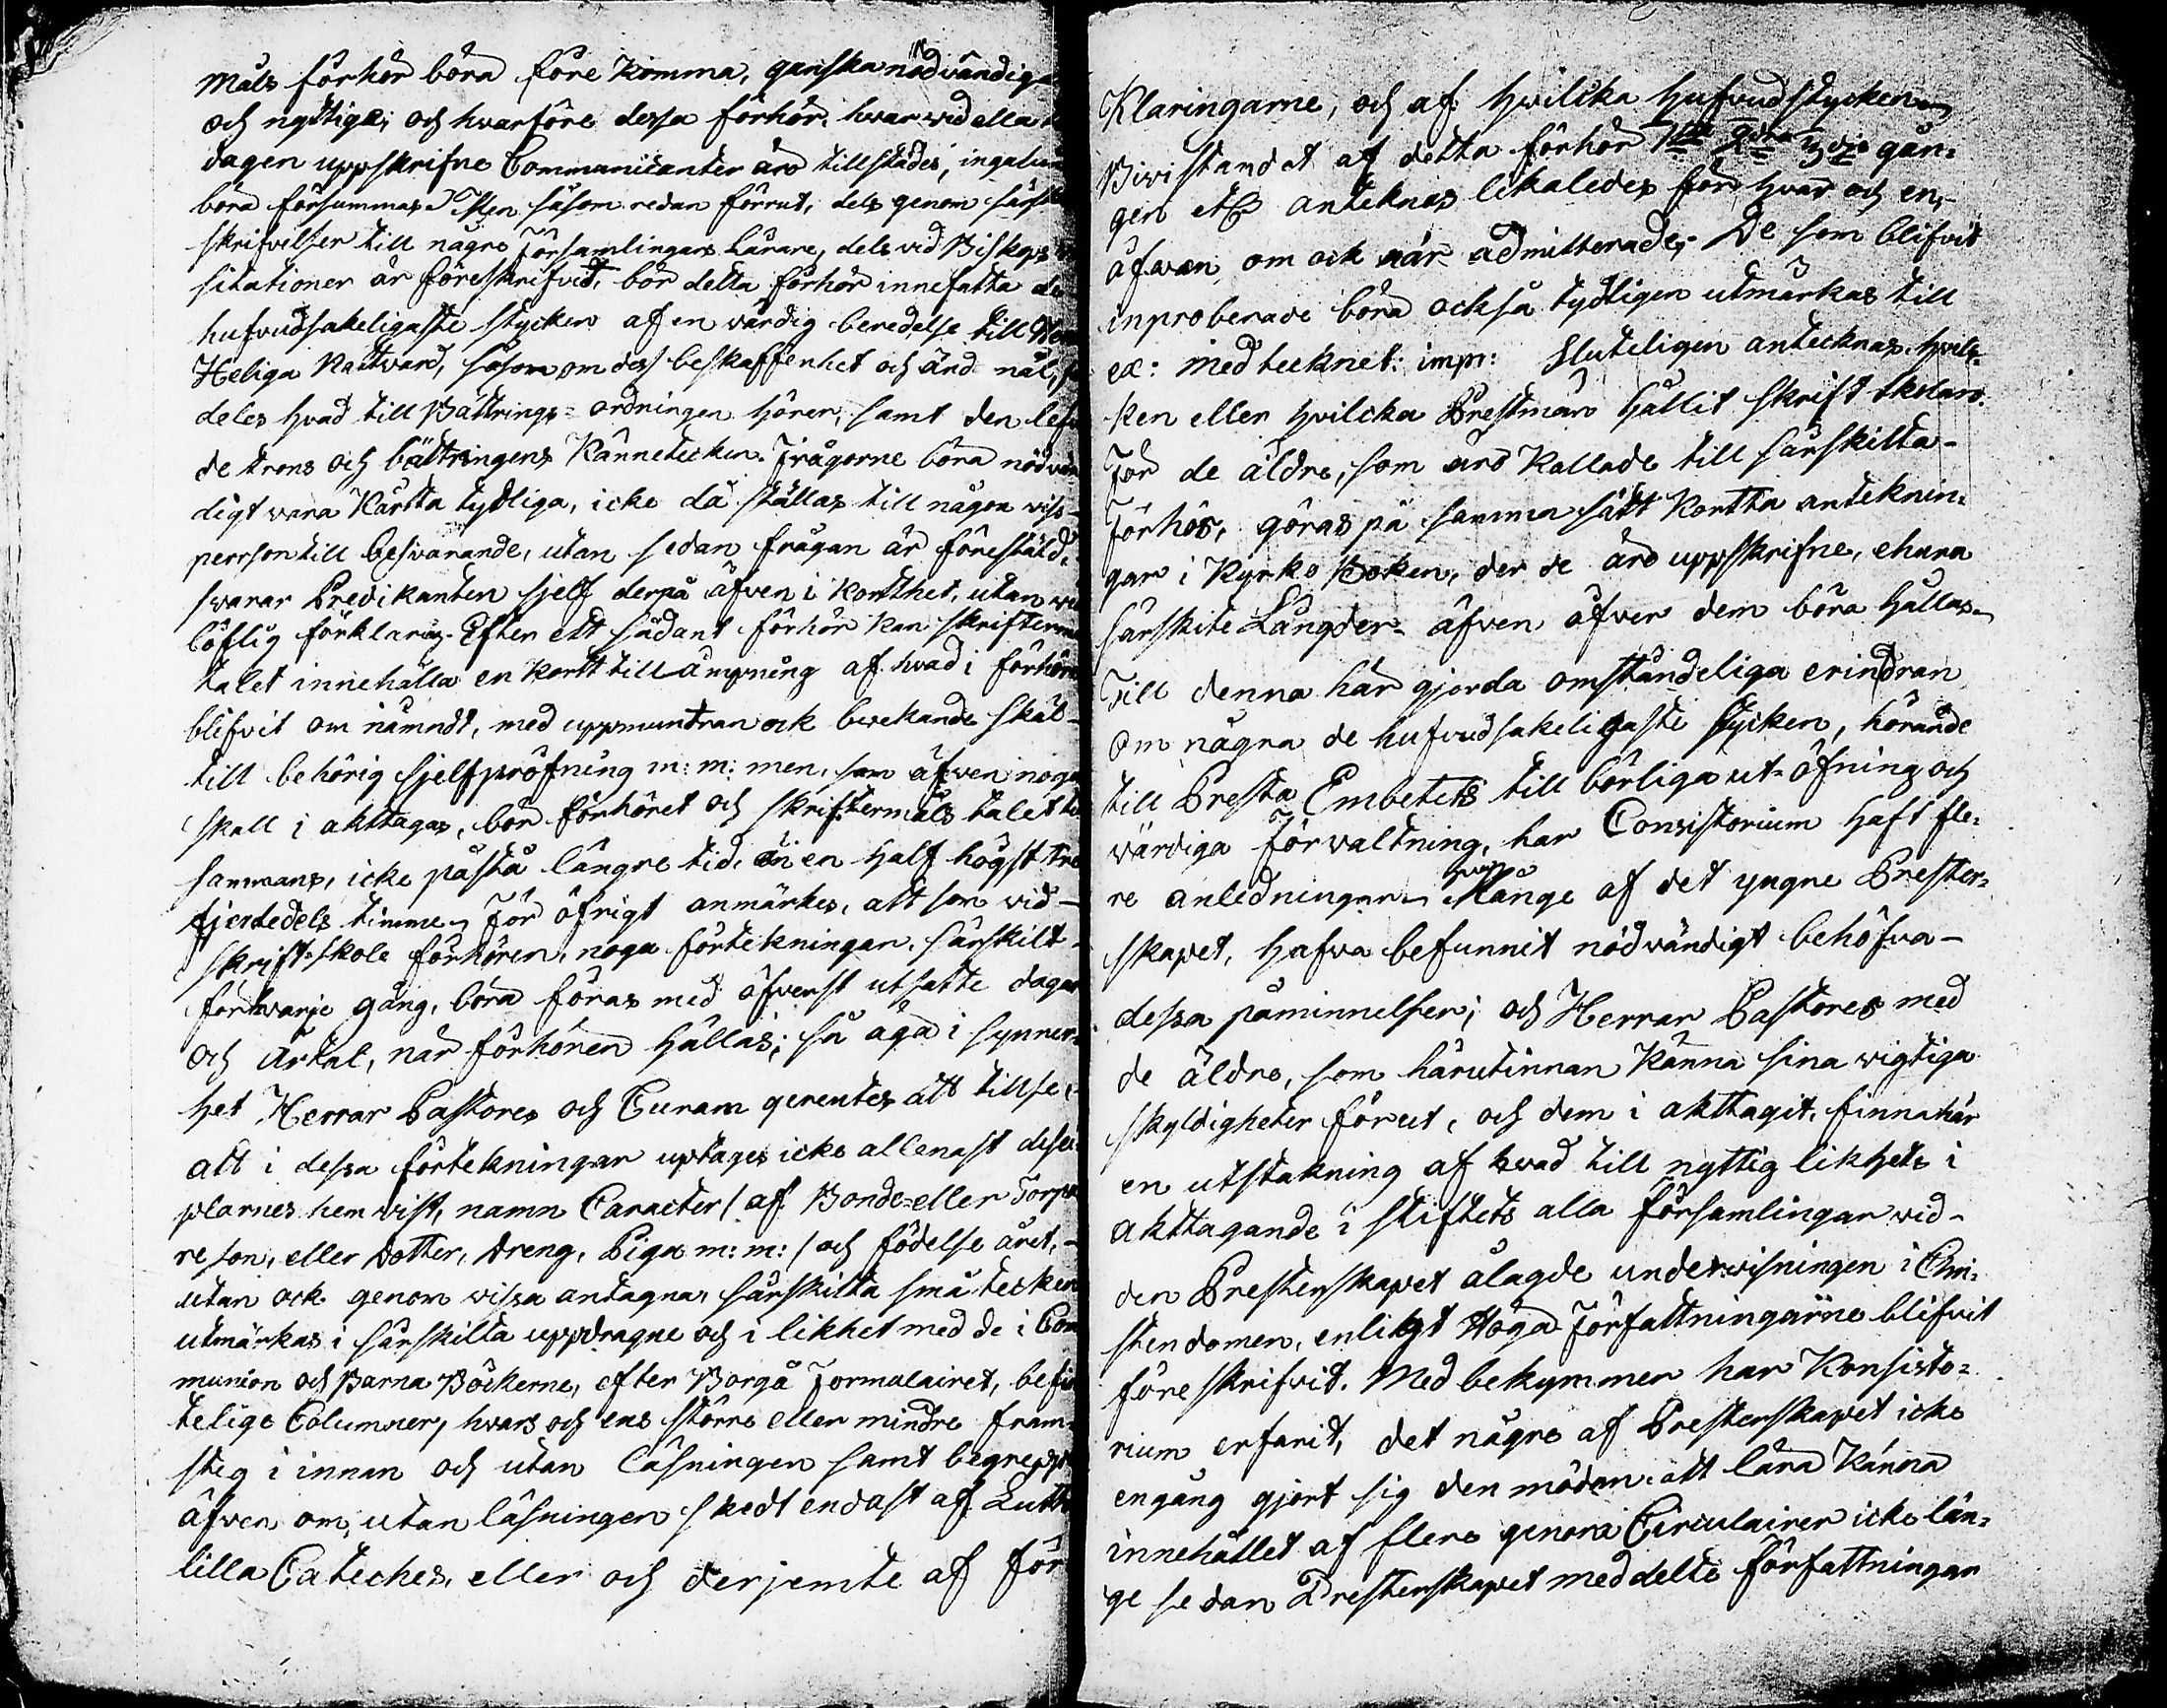 Måls förhör böra före komma, ganska nödvändiga
och nyttige; och hvarföre dessa förhör, hvarvid alla
dagen uppskrifne Communicanter äro tillstädes, ingalun
böra försummas. Men såsom redan förrut, dels genom särsk
skrifvelser till någre Församlingars Lärare, dels vid Biskops
sitationer är föreskrifvit, bör detta förhör innefatta de
hufvudsakeligaste stycken af en värdig beredelse till
Heliga Nattvard, såsom om dess beskaffenhet och ändamål,
deles hvad till Bättrings-ordningen hörer, samt den lefv
de trons och bättringens Kännetecken. Frågorne böra nödvän
digt vara Kårtta tydliga, icke då ställas till någon viss
perrson till besvarande, utan sedan frågan är föreställd,
svarar Predikanten sjelf derpå äfven i Kortthet, utan
löftig förklaring. Efter ett sådant förhör kan skrifterm
talet innehålla en kortt tillämpning af hvad i förhöre
blifvit om nämndt, med uppmuntran ock bevekande skäl
till behörig sjelfpröfning m: m: men, som äfven noga
skall i akttagas, bör förhöret och skriftermåls talet ti
sammans, icke påstå längre tid, än en half högst tre
fjerdedels timme. För öfrigt anmärkes, att som vid
skrift-skole förhören, noga förtekningar, särskilt
för hvarje gång, böra föras med öfverst utsatte dagar
och Årtal, när förhören hållas; så äga i synner-
het Herrar Pastores och Curam gerentes att tillse,
att i dessa förtekningar uptages icke allenast disci
plarnes hemvist, namn Caracter /: af Bonde- eller Torpa
re son, eller dotter, dreng, Piga m: m: / och födelse året,
utan ock genom vissa antagna, särskilta små tecken
utmärkas i särskilta uppdragne och i likhet med de i Com
munion och Barna Böckerne, efter Borgå Formulairet, befin
telige Columner, hvars och ens större eller mindre fram-
steg i innan och utan läsningen samt begrepp
äfven om, utan läsningen skedt endast af Luth
lilla Cateches, eller och derjemte af för
Klaringarne, och af hvilcka hufvudstycken
Bivistandet af detta förhör 1sta 2dra 3dje gån-
gen etc antecknas likaledes för hvar och en,
äfven om ock när admitterades. De som blifvit
inproberade böra också tydligen utmärkas till
ex: med tecknet: impr: Sluteligen antecknas hvilc-
ken eller hvilcka Prestmän hållit skriftskolan.
För de äldre, som äro kallade till särskilta
Förhör, göras på samma sätt Kortta anteknin-
gar i Kyrko Boken, der de äro uppskrifne, ehuru
särskite Längder äfven öfver dem böra hållas.
Till denna här gjorda omständeliga erindran
om några de hufvudsakeligaste stycken, hörande
till Presta Embetets till börliga ut-öfning och
värdiga Förvaltning, har Consistorium haft fle-
re anledningar. Månge af det yngre Prester-
skapet, hafva befunnit nödvändigt behöfva
dessa påminnelser; och Herrar Pastores med
de äldre, som härutinnan känna sina wigtiga
skyldigheter förut, och dem i akttagit, finna här
en utstakning af hvad till nyttig likhets i
akttagande i stiftets alla församlingar vid
den Presterskapet ålagde undervisningen i Chri-
stendomen, enligt Höga Författningarne blifvit
föreskrifvit. Med bekymmer har Konsisto-
rium erfarit, det någre af Presterskapet icke
engång gjort sig den mödan att lära Känna
innehållet af flere genom Circulairer icke län-
ge sedan Presterskapet meddelte författningar